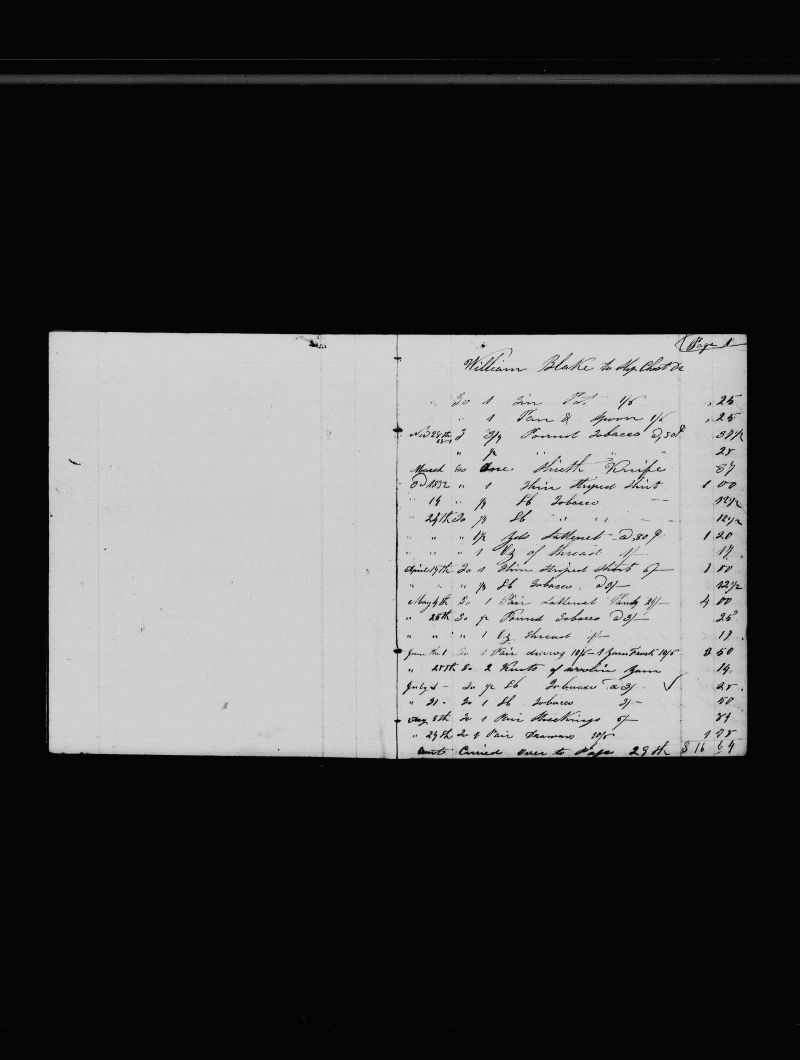 Page 1
William Blake to Ship Chest Dr
To 1 Tin Pot 1/6 .25
" 1 Pan & Spoon 1/6 .25
Nov 28th 3/4 Pound Tobacco @ 50 37 1/2
" 1/2 " " 25
March To One Sheath Knife 37
3d 1852 " 1 Thin Striped Shirt 1 00
" 14 " 1/4 Lb Tobacco 12 1/2
" 24th To 1/4 Lb " " 12 1/2
" " " 1 1/2 Yds Sattinet @ 80 1 20
" " " 1 Oz of Thread 1/- 17
April 19th To 1 Thin Striped Shirt 6/- 1 00
" " " 1/4 Lb Tobacco @ 3/- 12 1/2
May 4th To 1 Pair Sattinet Pants 24/- 4 00
" 25th To 1/2 Pound Tobacco @ 3/- 25
" " " 1 Oz Thread 1/- 17
June 1 To 1 Pair drawers 10/6 1 Frock 10/6 3 50
" 25th To 2 Knots of Yarn 14
July 4 - To 1/2 Lb Tobacco @ 3/- 25
" 21 - To 1 Lb Tobacco 3/- 50
Aug 8th To 1 Pair Stockings
" 24th To 1 Pair Drawers 10/6 1 75
Amt Carried Over to Page 29th $ 16 64